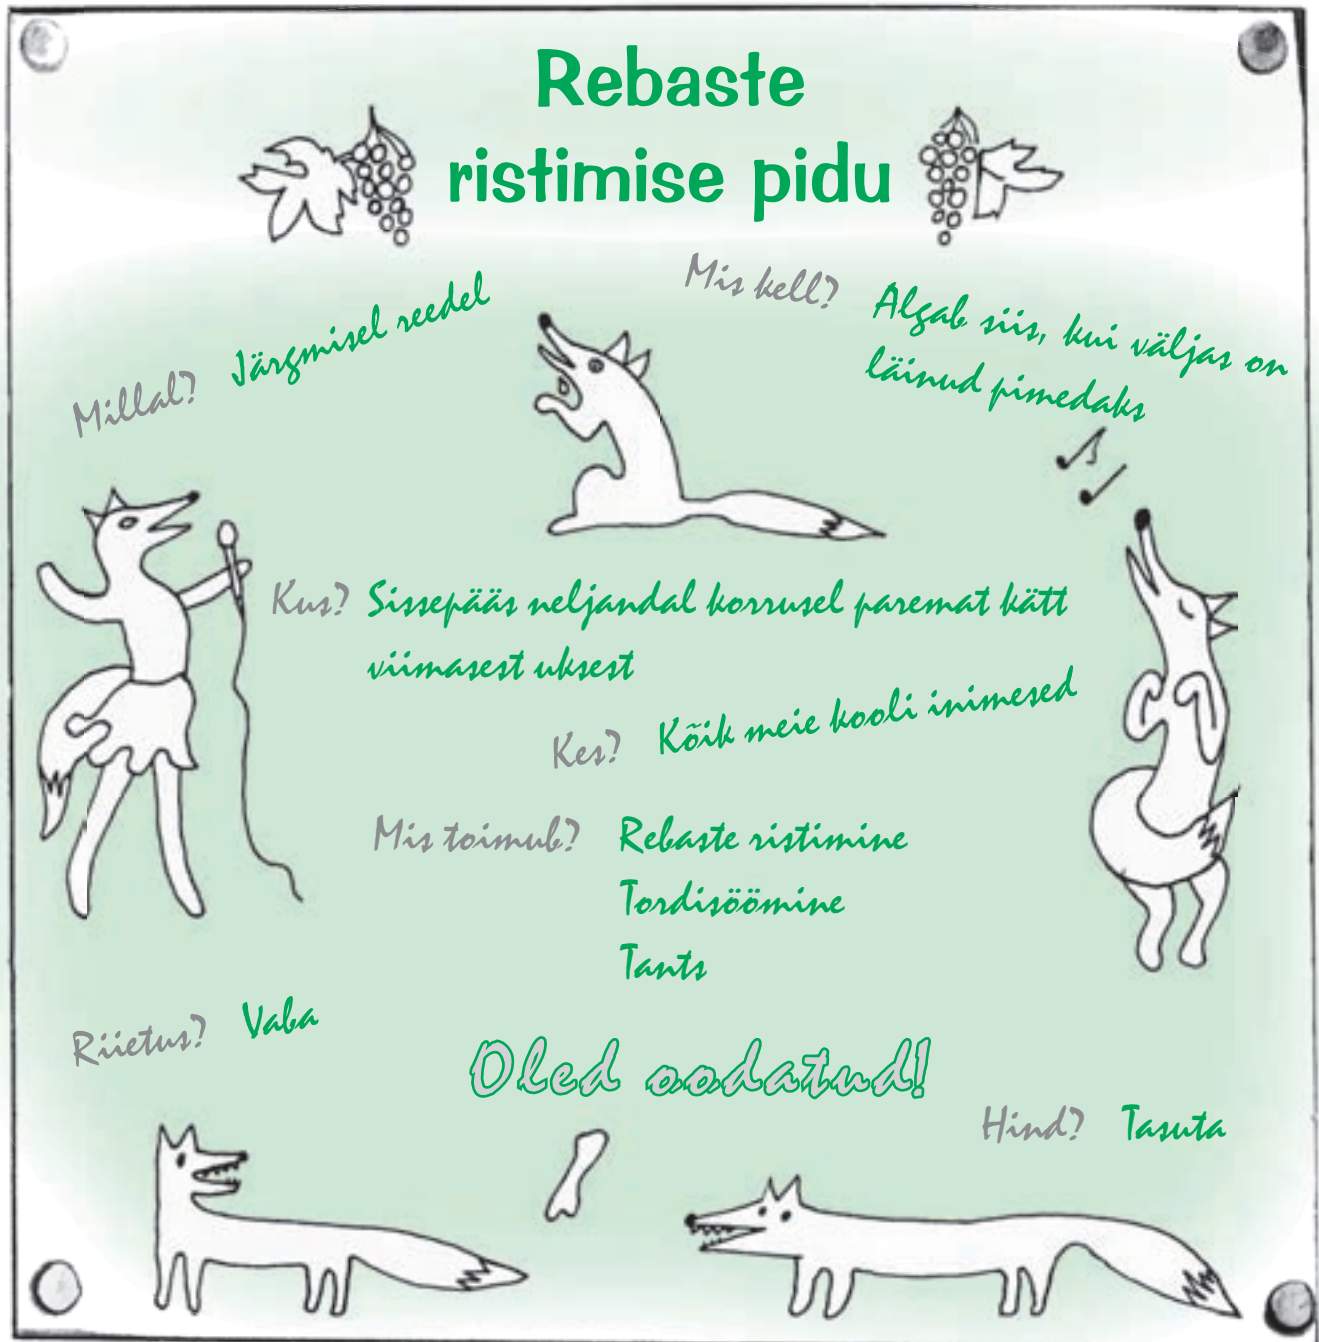 Rebaste
ristimise pidu
Millal? Järgmisel reedel
Mis kell? Algab siis, kui väljas on
läinud pimedaks
Kus? Sissepääs neljandal korrusel paremat kätt
viimasest uksest
Kes? Kõik meie kooli inimesed
Mis toimub? Rebaste ristimine
Tordisöömine
Tants
Riietus? Vaba
Oled oodatud!
Hind? Tasuta